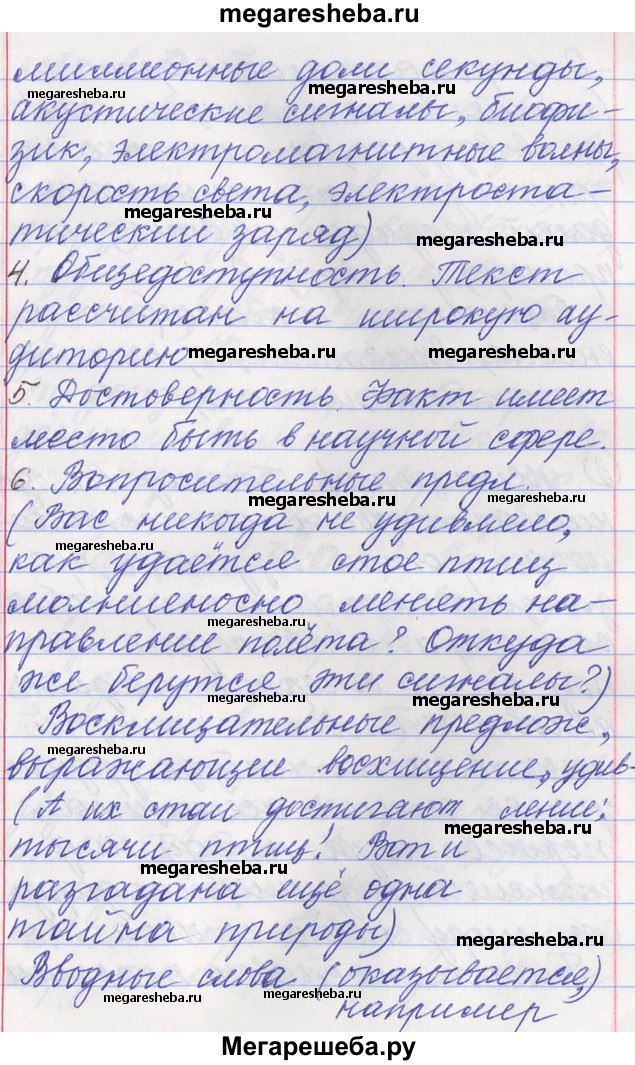 megaresheba.ru
миллионные доли секунды,
megaresheba.ru
megaresheba.ru
акустические сигналы, биофи-
зик, электромагнитные волны,
megaresheba.ru
скорость света, электроста-
megaresheba.ru
тический заряд)
megaresheba.ru
4. Общедоступность. Текст
рассчитан на широкую ау-
диторию
megaresheba.ru
megaresheba.ru
5. Достоверность. Факт имеет
место быть в научной сфере.
6. Вопросительные предл.
megaresheba.ru
megaresheba.ru
(Вас никогда не удивляло,
megaresheba.ru
как удаётся стае птиц
молниеносно менять на-
megaresheba.ru
правление полёта? Откуда
же берутся эти сигналы?)
megaresheba.ru
megaresheba.ru
Восклицательные предлож.,
megaresheba.ru
выражающие восхищение, удив-
(А их стаи достигают ление:
megaresheba.ru
тысячи птиц! Вот и
megaresheba.ru
разгадана ещё одна
тайна природы)
megaresheba.ru
Вводные слова (оказывается,
megaresheba.ru
megaresheba.ru
например)
Мегарешеба.ру